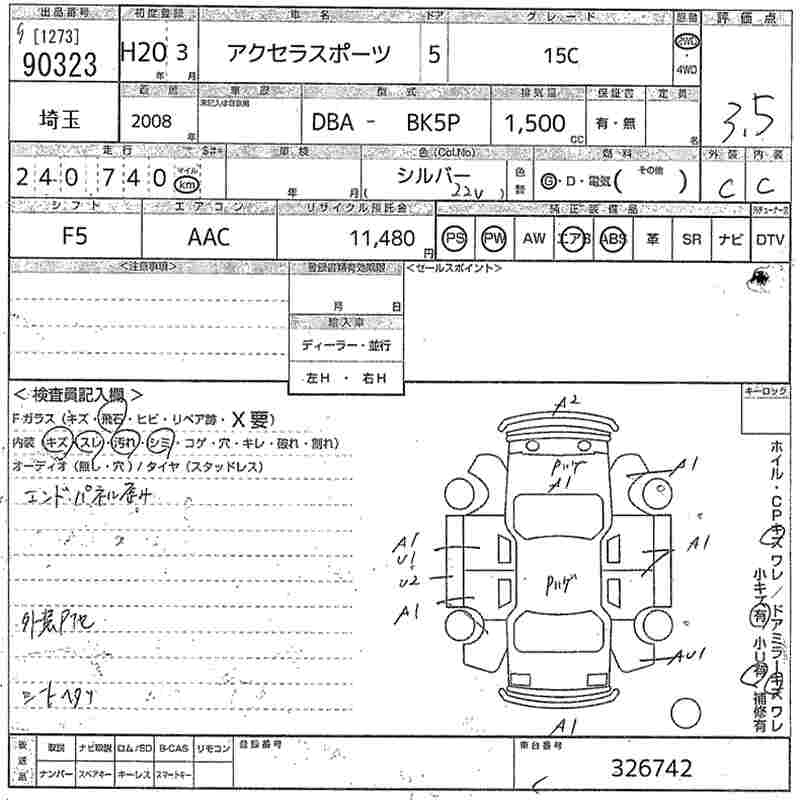 出品番号 初度登録 車名 ドア グレード 駆動 評価点
[1273]
90323
H20 3 アクセラスポーツ 5 15C 2WD ・ 4WD
年 月
3.5
車歴 型式 排気量 保証書 定員
未記入は自家用
埼玉 2008 年 DBA - BK5P 1,500 cc 有・無 名
走行 車検 色(Col.No) 燃料 外装 内装
240,740 マイル km 年 月 シルバー ( 22V ) 色替 G・D・電気( その他 ) C C
シフト エアコン リサイクル預託金 純正装備品
F5 AAC 11,480円 PS PW AW エアB ABS 革 SR ナビ DTV
<注意事項> 登録書類有効期限 <セールスポイント>
月 日
輸入車
ディーラー・並行
左H ・ 右H
<検査員記入欄> キーロック
Fガラス(キズ・飛石・ヒビ・リペア跡・X要)
内装 キズ・スレ・汚れ・シミ・コゲ・穴・キレ・破れ・割れ)
オーディオ(無し・穴)/タイヤ(スタッドレス)
エンド・パネル歪み
外装
シートヘタリ
A2
A1
A1
A1
U1
U2
A1
A1
AU1
A1
Pハゲ
Pハゲ
ホイル・CPキズ ワレ/ドアミラーキズ ワレ
小キズ有 小U有 補修有
後送品 取説 ナビ取説 ロム/SD B-CAS リモコン 登録番号 車台番号
ナンバー スペアキー キーレス スマートキー 326742